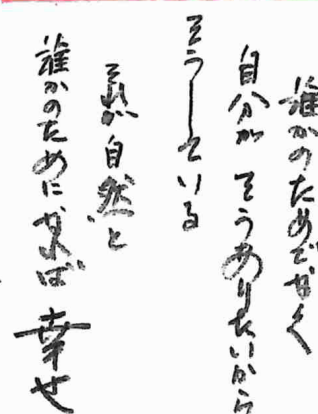 誰かのためでなく
自分が そうありたいから
そうしている
それが 自然と
誰かのために なれば 幸せ